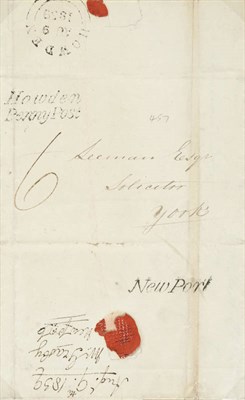 HOWDEN
AU 9
1839
Howden
Penny Post
6
457
Leeman Esqr
Solicitor
York
New Port
Augt. 9th 1839
Newport